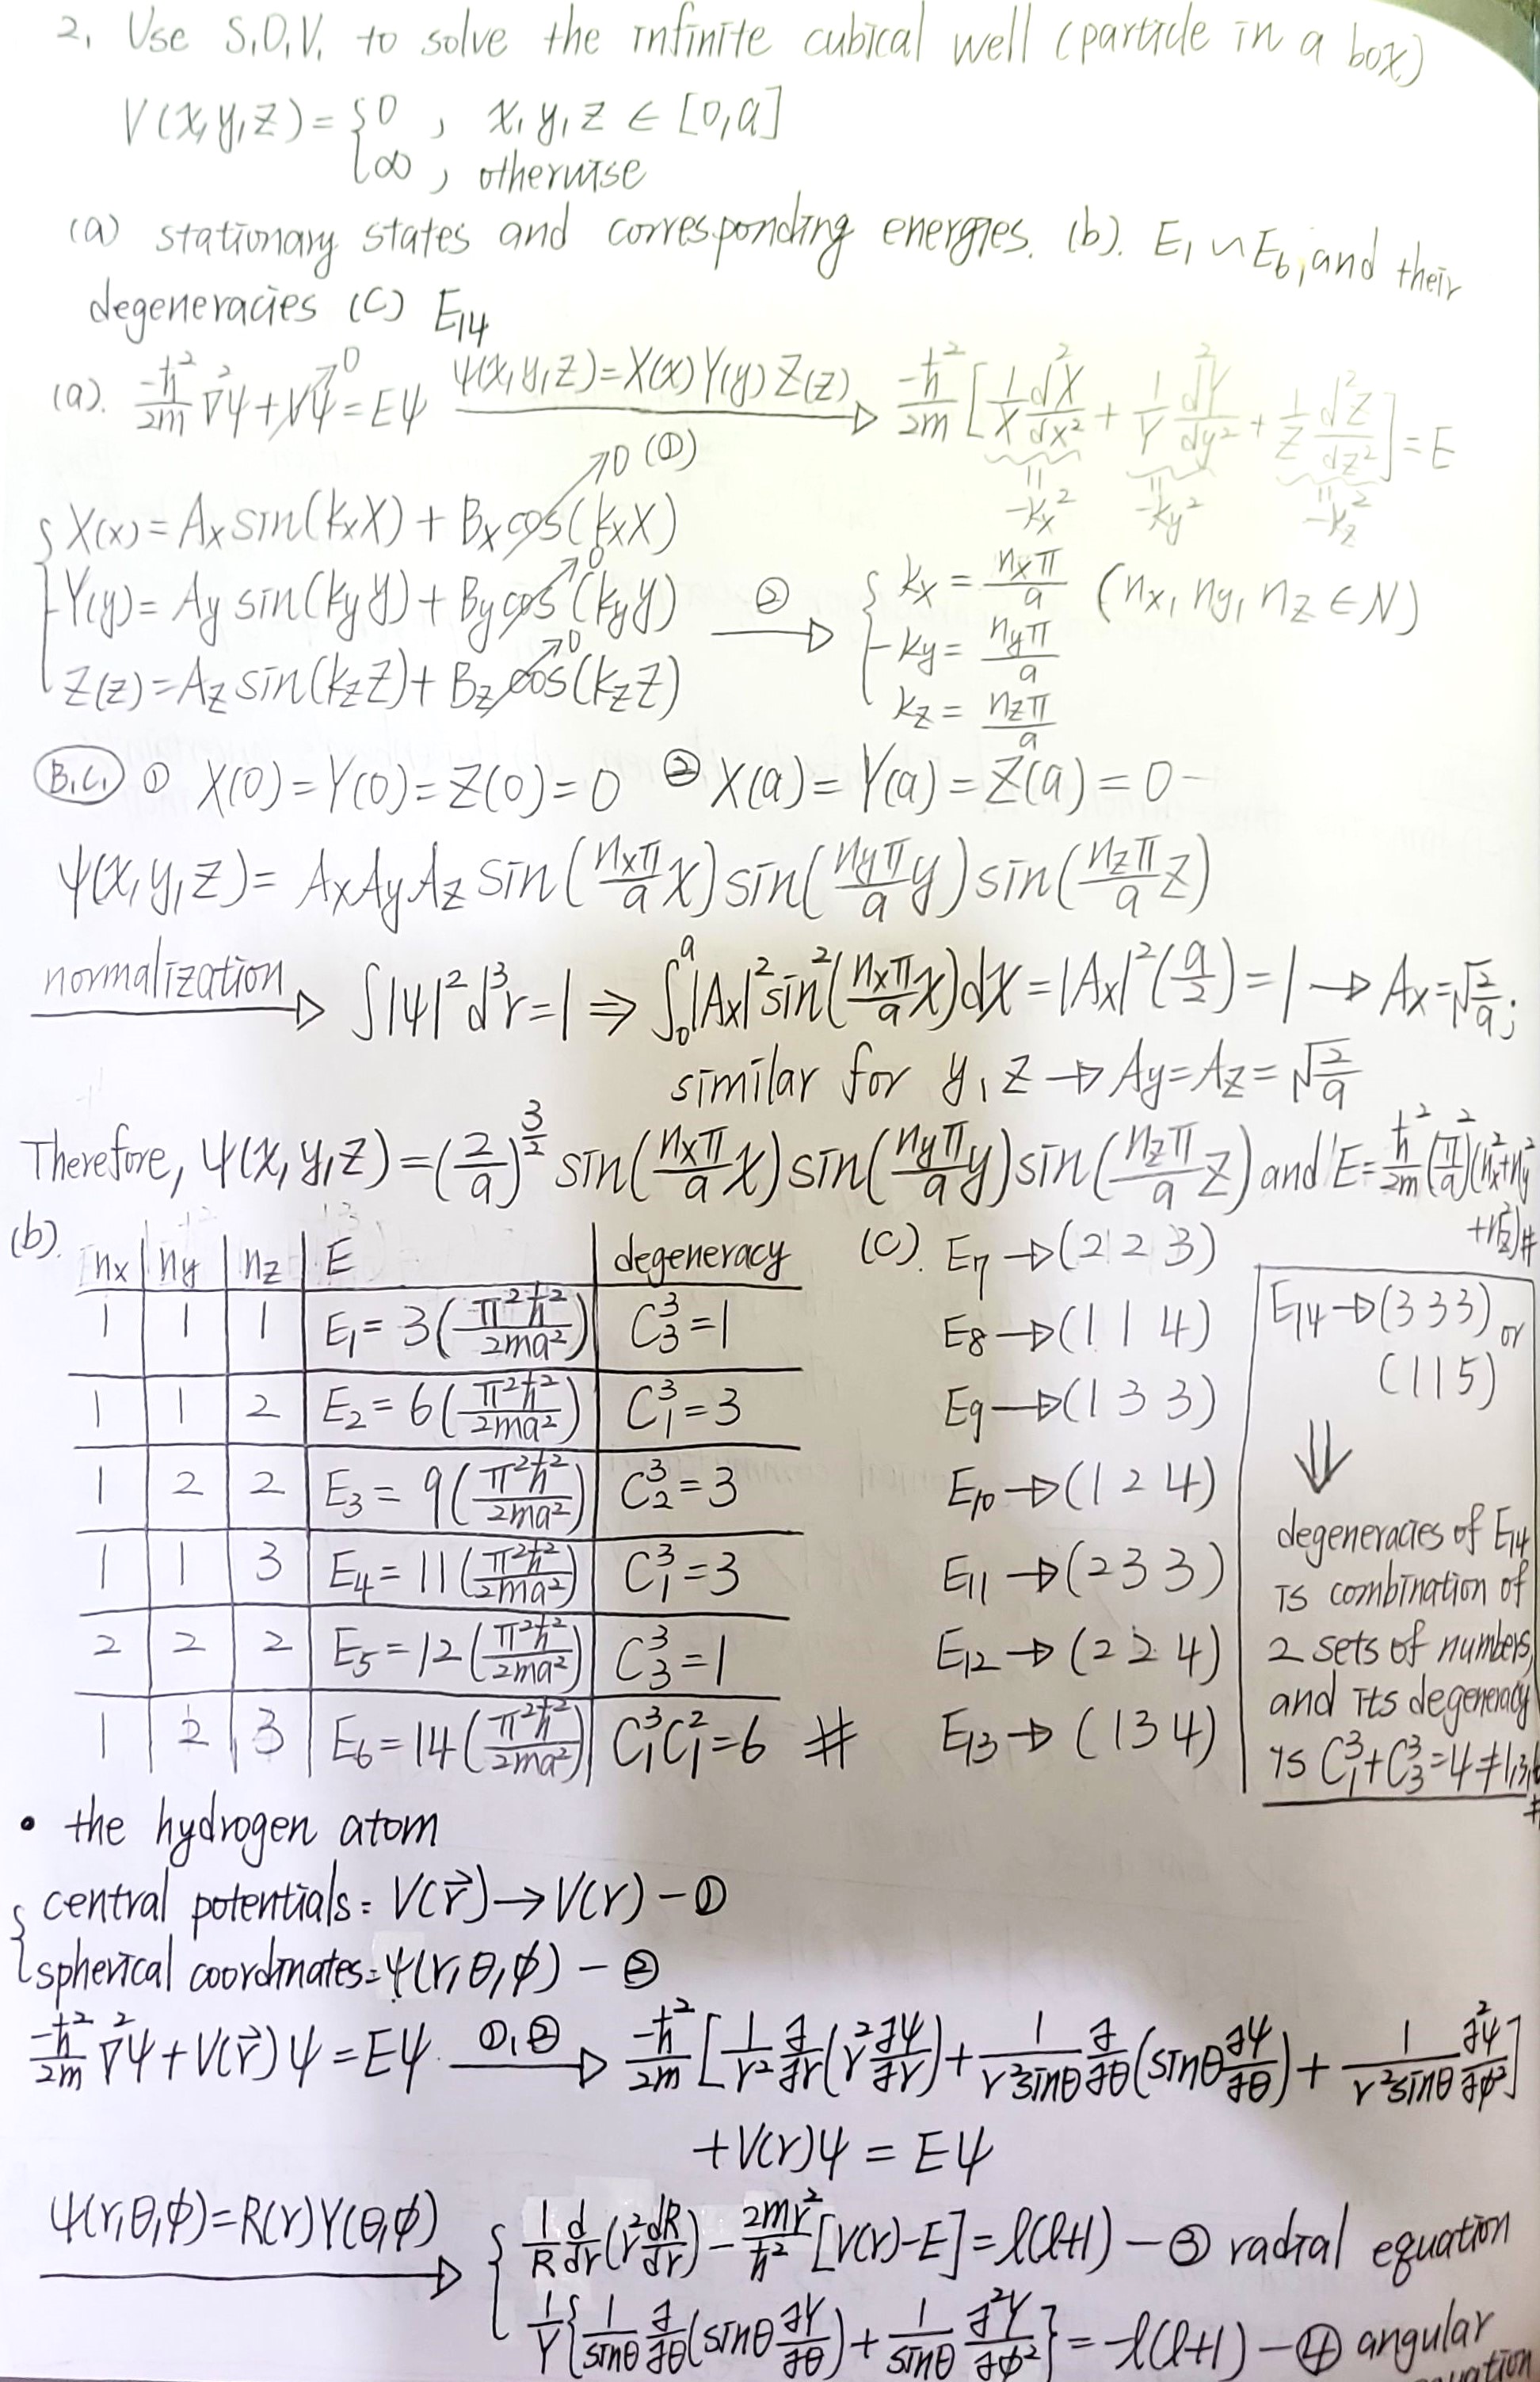 2. Use S.O.V. to solve the infinite cubical well (particle in a box)
V(x,y,z) = { 0 , x,y,z ∈ [0,a]
∞ , otherwise
(a) stationary states and corresponding energies. (b). E₁ ~ E₆, and their
degeneracies (c) E₁₄
(a). -ħ²/2m ∇²ψ + Vψ↗0 = Eψ ψ(x,y,z)=X(x)Y(y)Z(z) → -ħ²/2m [1/X d²X/dx² + 1/Y d²Y/dy² + 1/Z d²Z/dz²] = E
= -kx² = -ky² = -kz²
X(x) = Ax sin(kxX) + Bx cos(kxX) ↗0 (①)
Y(y) = Ay sin(kyy) + By cos(kyy) ↗0 ② → { kx = nxπ/a (nx, ny, nz ∈ N)
ky = nyπ/a
Z(z) = Az sin(kzz) + Bz cos(kzz) ↗0
kz = nzπ/a
B.C. ① X(0) = Y(0) = Z(0) = 0 ② X(a) = Y(a) = Z(a) = 0
ψ(x,y,z) = AxAyAz sin(nxπ/a x) sin(nyπ/a y) sin(nzπ/a z)
normalization → ∫|ψ|²d³r = 1 ⇒ ∫₀ᵃ|Ax|² sin²(nxπ/a x)dx = |Ax|²(a/2) = 1 → Ax = √(2/a);
similar for y, z → Ay = Az = √(2/a)
Therefore, ψ(x,y,z) = (2/a)^(3/2) sin(nxπ/a x) sin(nyπ/a y) sin(nzπ/a z) and E = ħ²/2m (π/a)²(nx²+ny²
+nz²)#
(b). nx ny nz E degeneracy
1 1 1 E₁ = 3(π²ħ²/2ma²) C³₃ = 1
1 1 2 E₂ = 6(π²ħ²/2ma²) C³₁ = 3
1 2 2 E₃ = 9(π²ħ²/2ma²) C³₂ = 3
1 1 3 E₄ = 11(π²ħ²/2ma²) C³₁ = 3
2 2 2 E₅ = 12(π²ħ²/2ma²) C³₃ = 1
1 2 3 E₆ = 14(π²ħ²/2ma²) C³₁C²₁ = 6 #
(c). E₇ → (2 2 3)
E₈ → (1 1 4)
E₉ → (1 3 3)
E₁₀ → (1 2 4)
E₁₁ → (2 3 3)
E₁₂ → (2 2 4)
E₁₃ → (1 3 4)
E₁₄ → (3 3 3) or
(1 1 5)
⇓
degeneracies of E₁₄
is combination of
2 sets of numbers,
and its degeneracy
is C³₁ + C³₃ = 4 ≠ 1,3,6
#
• the hydrogen atom
central potentials = V(r⃗) → V(r) - ①
spherical coordinates = ψ(r,θ,φ) - ②
-ħ²/2m ∇²ψ + V(r⃗)ψ = Eψ ①,② → -ħ²/2m [1/r² ∂/∂r(r² ∂ψ/∂r) + 1/r²sinθ ∂/∂θ(sinθ ∂ψ/∂θ) + 1/r²sinθ ∂²ψ/∂φ²]
+ V(r)ψ = Eψ
ψ(r,θ,φ) = R(r)Y(θ,φ) → { 1/R d/dr(r² dR/dr) - 2mr²/ħ² [V(r)-E] = l(l+1) - ③ radial equation
1/Y{1/sinθ ∂/∂θ(sinθ ∂Y/∂θ) + 1/sinθ ∂²Y/∂φ²} = -l(l+1) - ④ angular